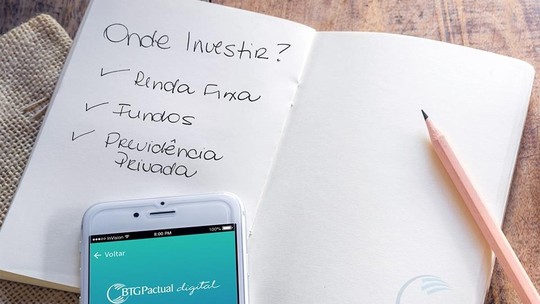 Onde Investir?
✓ Renda Fixa
✓ Fundos
✓ Previdência
Privada
InVision
8:00 PM
100%
Voltar
BTGPactual digital